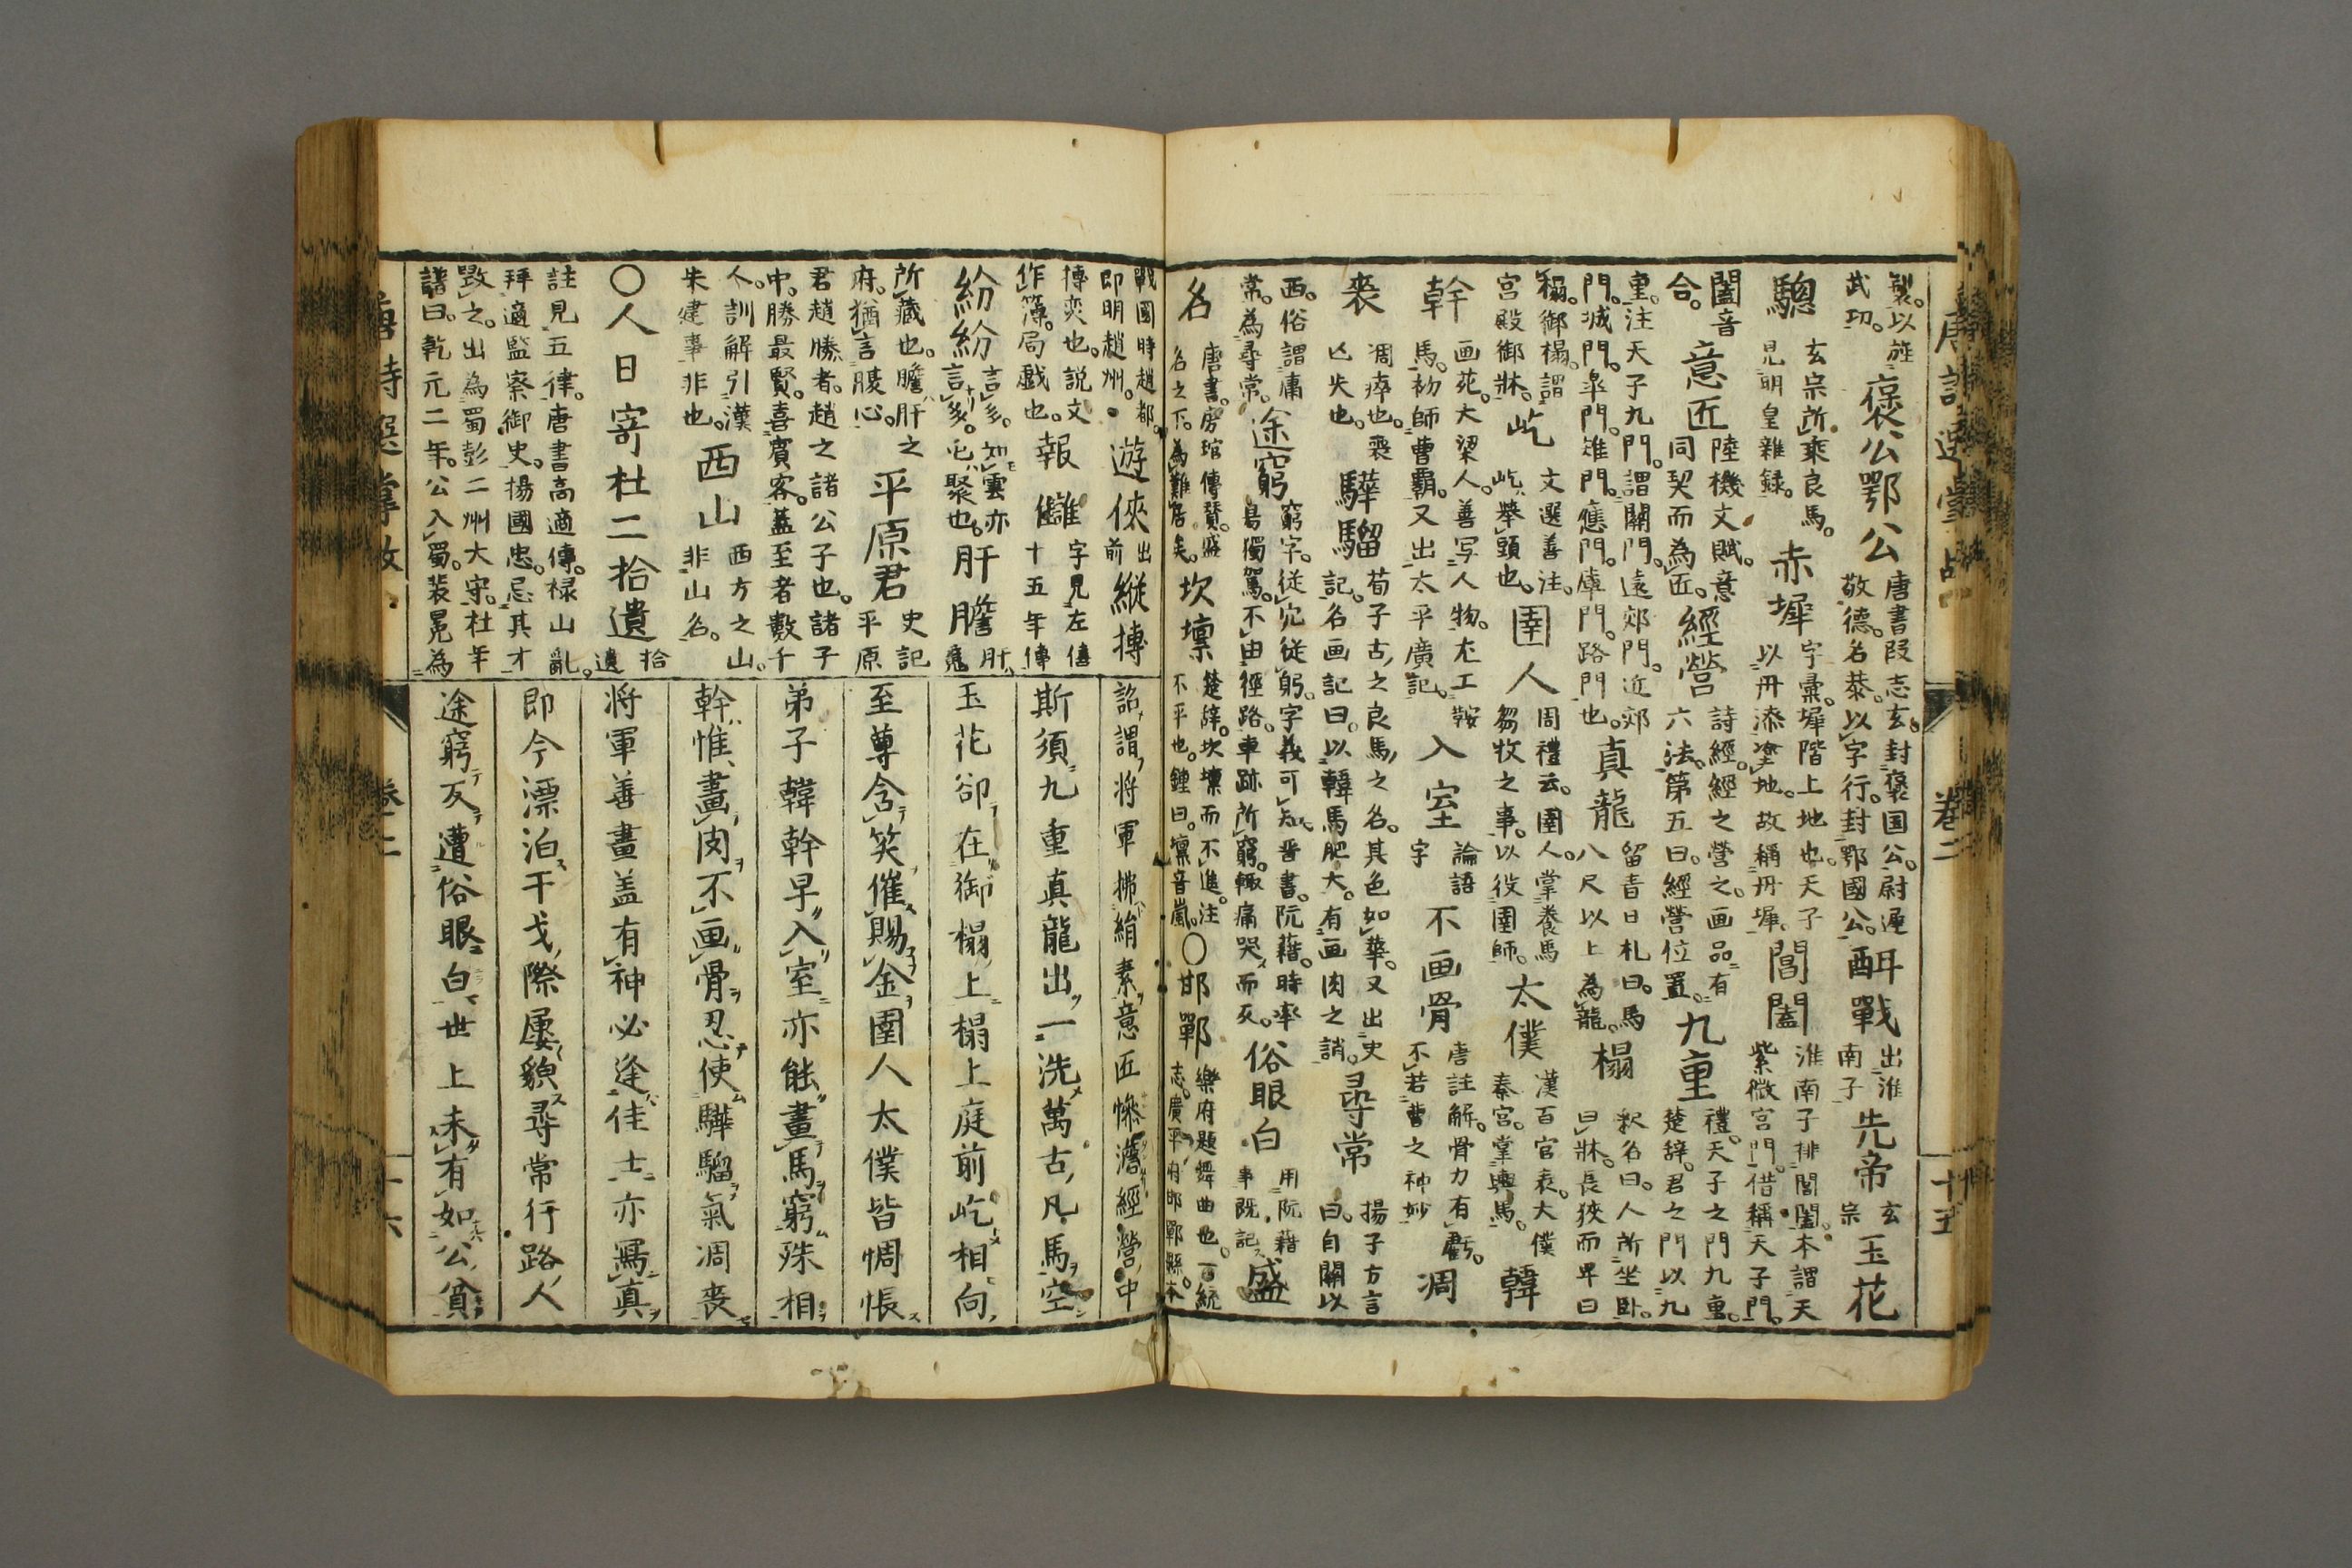 唐詩選掌故 卷二 十五
製。以旌武功。 褒公鄂公 唐書段志玄。封褒国公。尉遲敬德。名恭。以字行。封鄂國公。 酣戰 出淮南子 先帝 玄宗 玉花
驄 玄宗所乘良馬。見明皇雜録。 赤墀 字彙。墀階上地也。天子以丹漆塗地。故稱丹墀。 閶闔 淮南子排閶闔。本謂天紫微宮門。借稱天子門。
闔音合。 意匠 陸機文賦。意同契而為匠。 經營 詩經。經之營之。画品有六法。第五曰。經營位置。 九重 禮。天子之門九重。楚辞。君之門以九
重。注天子九門。謂關門。遠郊門。近郊門。城門。皐門。雉門。應門。庫門。路門也。 真龍 留青日札曰。馬八尺以上為龍。 榻 釈名曰。人所坐卧。曰牀。長狹而卑曰
榻。御榻。謂宮殿御牀。 屹 文選善注。屹。舉頭也。 圉人 周禮云。圉人。掌養馬芻牧之事。以役圉師。 太僕 漢百官表。大僕秦官。掌輿馬。 韓
幹 画苑。大梁人。善写人物。尤工鞍馬。初師曹霸。又出太平廣記。 入室 論語字 不画骨 唐註解。骨力有虧。不若曹之神妙 凋
喪 凋瘁也。喪亾失也。 驊騮 荀子古之良馬之名。其色如華。又出史記。名画記曰。以韓馬肥大。有画肉之誚。 尋常 揚子方言曰。自關以
西。俗謂庸常。為尋常。 途窮 窮字。從穴從躬。字義可知。晋書。阮藉。時率易獨駕。不由徑路。車跡所窮。輙痛哭而反。 俗眼白 用阮藉事既記 盛
名 唐書。房琯傳贊。盛名之下。為難居矣。 坎壈 楚辞。坎壈而不進。注不平也。鍾曰。壈音嵐。 〇邯鄲 樂府題。舞曲也。一統志。廣平府邯鄲縣。本
戰國時趙都。即明趙州。 遊俠 出前 縦摶
摶奕也。説文作簿。局戯也。 報讎 字見左傳十五年傳
紛紛 言多。如雲亦言多。屯聚也。 肝膽 肝魂
所藏也。膽肝之府。猶言腹心。 平原君 史記平原
君趙勝者。趙之諸公子也。諸子中。勝最賢。喜賓客。蓋至者數千
人。訓解引漢朱建事非也。 西山 西方之山。非山名。
〇人日寄杜二拾遺 拾遺
註見五律。唐書高適傳。禄山亂。拜適監察御史。揚國忠。忌其才
毀之。出為蜀彭二州大守。杜年譜曰。乾元二年。公入蜀。裴冕為
詔謂將軍拂絹素意匠慘澹經營中
斯須九重真龍出一洗萬古凡馬空
玉花卻在御榻上榻上庭前屹相向
至尊含笑催賜金圉人太僕皆惆悵
弟子韓幹早入室亦能畫馬窮殊相
幹惟畫肉不画骨忍使驊騮氣凋喪
將軍善畫盖有神必逢佳士亦寫真
即今漂泊干戈際屢貌尋常行路人
途窮反遭俗眼白世上未有如公貧
唐詩選掌故 卷二 十六